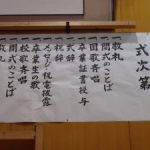 式次第
一 敬礼
一 開式のことば
一 国歌斉唱
一 卒業証書授与
一 式辞
一 祝辞
一 メッセージ・祝電披露
一 卒業生の歌
一 校歌斉唱
一 閉式のことば
一 敬礼